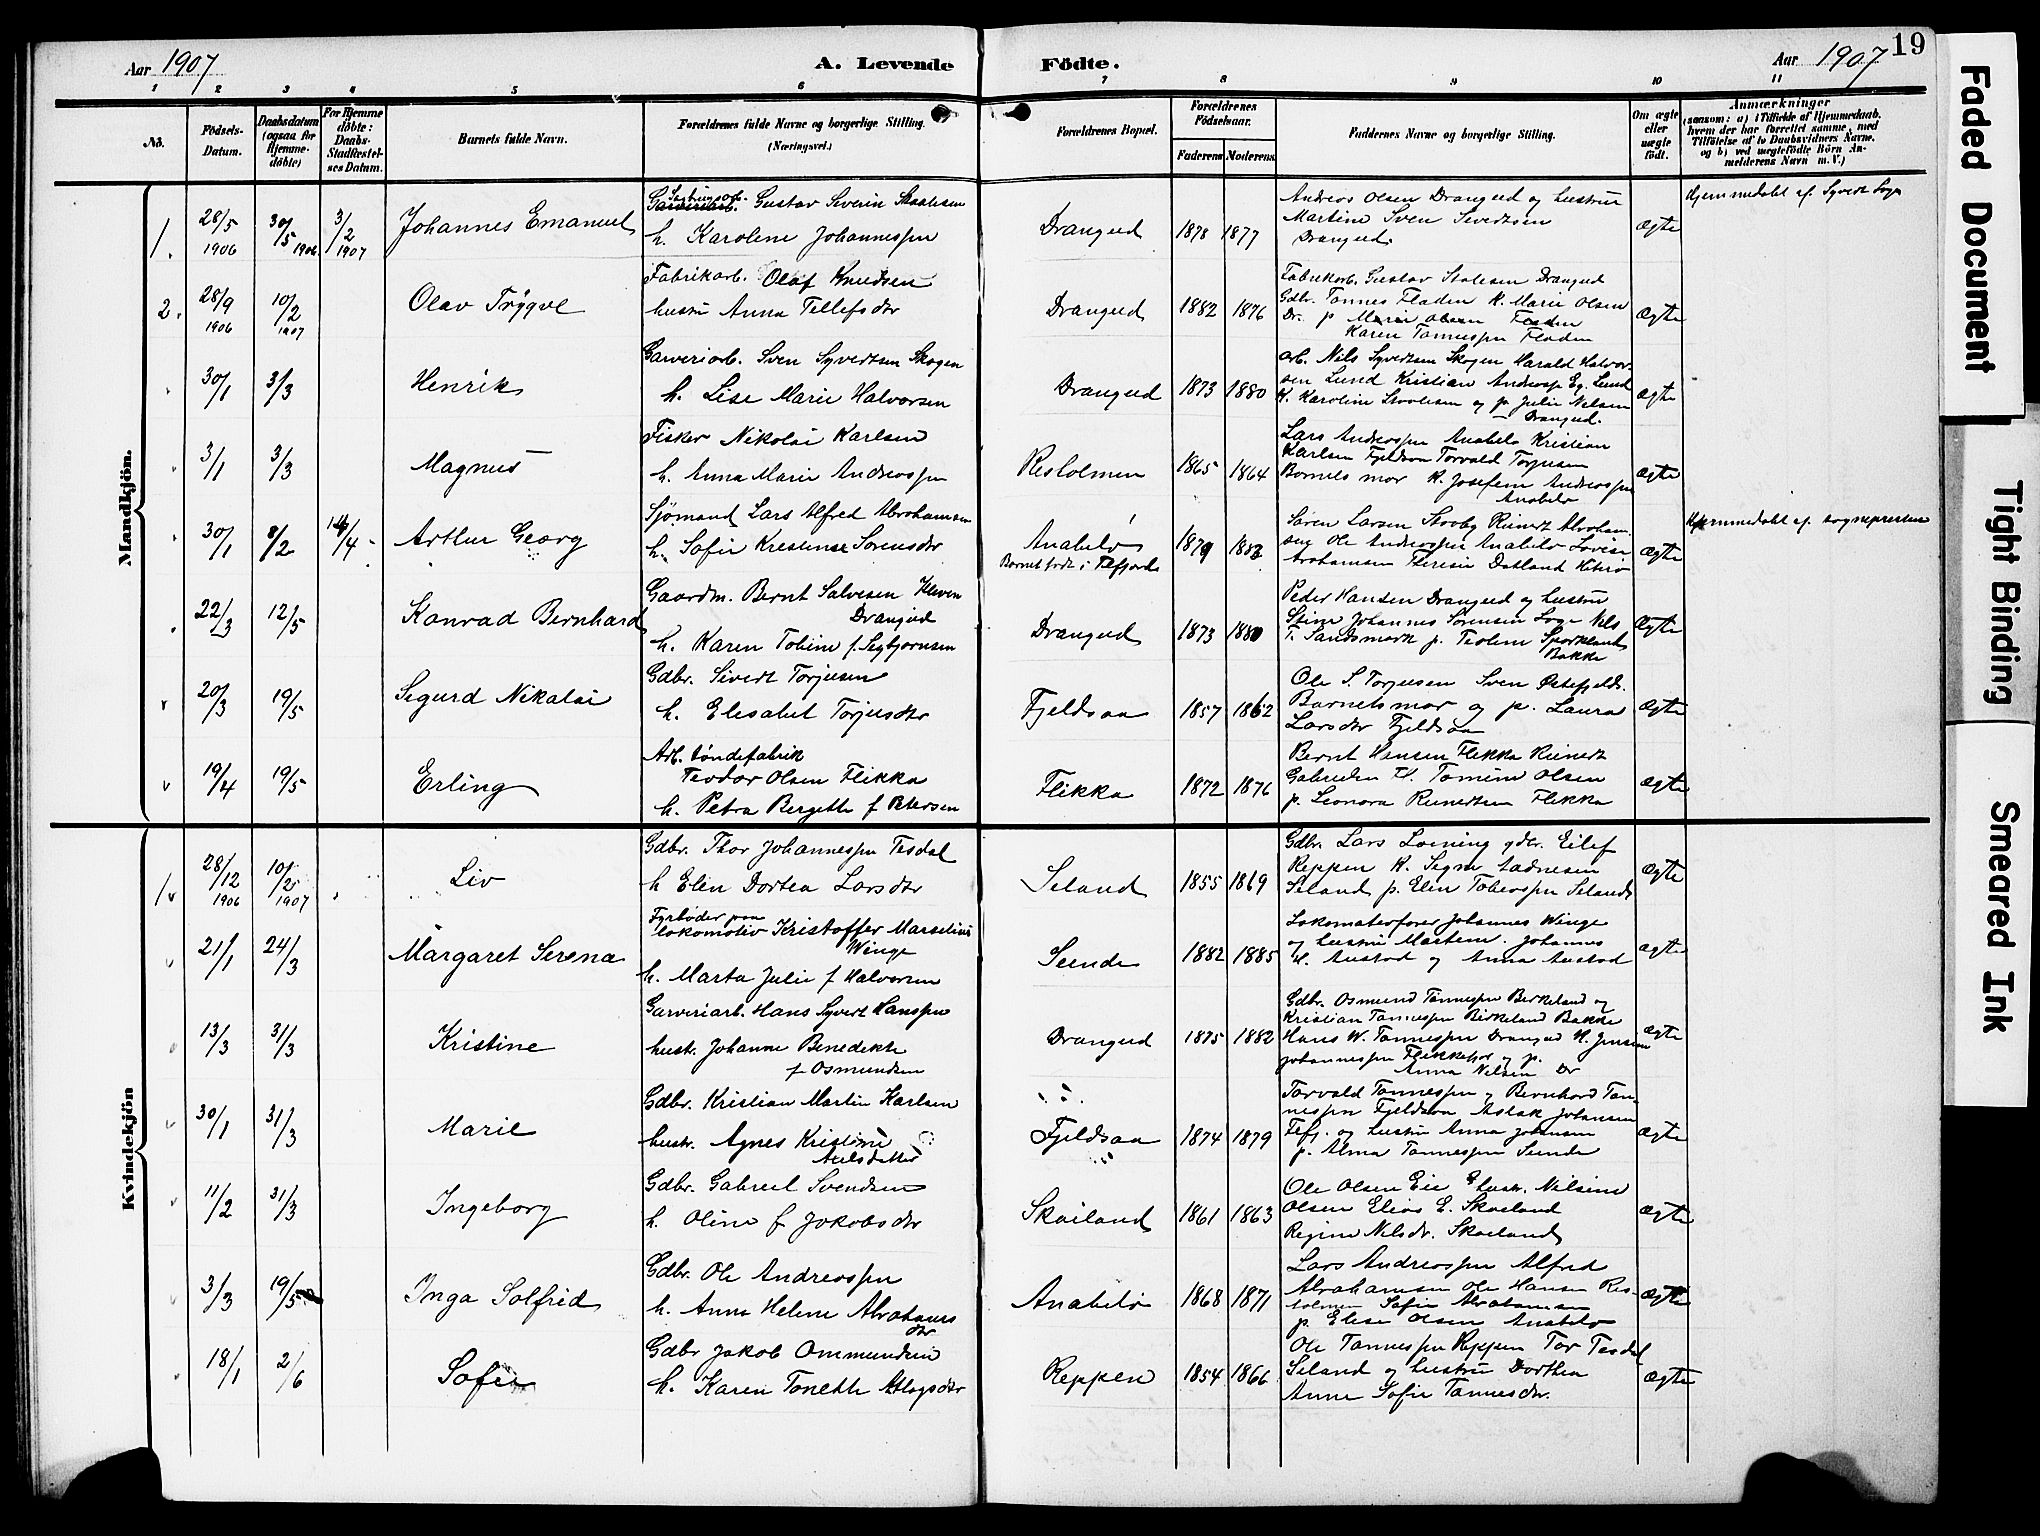 Aar 1907
A. Levende
Födte.
Aar 1907
19
1 2 3 4 5 6 7 8 9 10 11
No.
Födsels-Datum.
Daabsdatum (ogsaa for Hjemme-döbte)
For Hjemme döbte: Daabs-Stadfæstel-ses Datum.
Barnets fulde Navn.
Forældrenes fulde Navne og borgerlige Stilling.
(Næringsvei.)
Forældrenes Bopæl.
Forældrenes Födselsaar.
Faderens
Moderens
Faddernes Navne og borgerlige Stilling.
Om ægte eller uægte födt.
Anmærkninger
(saasom: a) i Tilfælde af Hjemmedaab.
hvem der har forrettet samme, med
Tilföielse af to Daabsvidners Navne.
og b) ved uægtefödte Börn An-
melderens Navn m. V.)
Mandkjön.
1. 28/5 1906 30/5 1906 3/2 1907 Johannes Emanuel
Gustav Severin Staalesen
h. Karoline Johannespn
Drangeid 1878 1877
Andreas Olsen Drangeid og hustru
Martine Sven Severtsen
Drangeid.
ægte
Hjemmedøbt af Syvert
2. 28/9 1906 10/2 1907 Olav Trygve
Fabrikarb. Olaf Knudsen
hustru Anna Tellefsdtr
Drangeid 1882 1876
Fabrikarb. Gustav Stalesen Drangeid
Gdbr. Tønnes Fladen K. Marie Olsen
Dr. p Marie Olsen Fladen
Karen Tønnespn Fladen
ægte
30/1 3/3 Henrik
Garveriarb. Sven Syvertsen Skogen
h. Lise Marie Halvorsen
Drangeid 1873 1880
arb. Nils Syvertsen Skogen Harald Halvor
sen Lund Kristian Andreasp Eg. Lund
K. Karoline Staalesen og p. Julie Nilsen
Drangeid.
ægte
3/1 3/3 Magnus
Fisker Nikolai Karlsen
h. Anna Marie Andreaspn
Resholmen 1865 1864
Lars Andreaspn Anabelø Kristian
Karlsen Fjeldsaa Torvald Torjusen
Barnets mor K. Josefine Andreaspn
Anabelø
ægte
30/1 8/2 14/4 Arthur Georg
Sjömand Lars Alfred Abrahamsen
h. Sofie Krestense Sørensdtr
Anabelø
Barnet født i Flefjord
1879 1883
Søren Larsen Reinert Abraham
sen Ole Andreaspn Anabelø Lovise
Abrahamsen Theresie Datland Hiterø
ægte
Hjemmedøbt af sognepresten
22/3 12/5 Konrad Bernhard
Gaardm. Bernt Salvesen Kleven
Drangeid
h. Karen Tobine f. Segbjørnsen
Drangeid 1873 1880
Peder Hansen Drangeid og hustru
Stine Johannes Sørensen Loge Nils
T. Sandsmark p. Teoline
Bakke
ægte
20/3 19/5 Sigurd Nikolai
Gdbr. Sivert Torjusen
h. Elesabet Torjusdtr
Fjeldsaa 1857 1862
Ole S. Torjusen Sven
Barnets mor og p. Laura
Larsdtr Fjeldsaa
ægte
19/4 19/5 Erling
Arb. tøndefabrik
Teodor Olsen Flikka
h. Petra Bergette f Petersen
Flikka 1872 1876
Bernt Hansen Flikka Reinert
Gabrielsen Fl. Tomine Olsen
p. Leonora Reinertsen Flikka
ægte
Kvindekjön
1 28/12 1906 10/2 1907 Liv
Gdbr. Thor Johannespn Tesdal
h Elen Dortea Larsdtr
Seland 1855 1869
Gdbr. Lars Loining gdbr. Eilef
Reppen K. Signe Aadnesen
Seland p. Elen Tobiaspn Seland
ægte
21/1 24/3 Margaret Serena
Fyrbøder paa
lokomotiv Kristoffer Marselius
Winge
h. Marta Julie f Halvorsen
Sende 1882 1885
Lokomotivfører Johannes Winge
og hustru Martine. Johannes
H. Austad og Anna Austad
ægte
13/3 31/3 Kristine
Garveriarb. Hans Syvert Hanspn
hustr. Johanne Benedikte
f Osmundsen
Drangeid 1875 1882
Gdbr. Osmund Tønnespn Birkeland og
Kristian Tønnespn Birkeland Bakke
Hans W. Tønnespn Drangeid K. Jensine
Johannespn Flikkehol og p.
Anna Nilsen Dr
ægte
30/1 31/3 Marie
Gdbr. Kristian Martin Karlsen
hustr. Agnes Kristine
Axelsdatter
Fjeldsaa 1874 1879
Torvald Tønnespn og Bernhard Tøn-
nespn Fjeldsaa Aslak Johansen
Flefj. og hustru Anna Johansen
p. Alma Tønnespn Sende
ægte
11/2 31/3 Ingeborg
Gdbr. Gabriel Svendsen
h. Oline f Jakobsdtr
Skailand 1861 1863
Ole Olsen Eie & hustr. Nilsine
Olsen Elias E. Skaeland
Regine Nilsdr. Skaeland
ægte
3/3 19/5 Inga Solfrid
Gdbr. Ole Andreaspn
h. Anna Helene Abrahams
dtr
Anabelø 1868 1871
Lars Andreaspn Alfred
Abrahamsen Ole Hansen Res-
holmen Sofie Abrahamsen
p. Elise Olsen Anabelø
ægte
18/1 2/6 Sofie
Gdbr Jakob Ommundsen
h. Karen Tonette Atlagsdtr
Reppen 1854 1866
Ole Tønnespn Reppen Tor Tesdal
Seland og hustru Dorthea
Anne Sofie Tønnesdtr.
ægte
Faded Document
Tight Binding
Smeared Ink